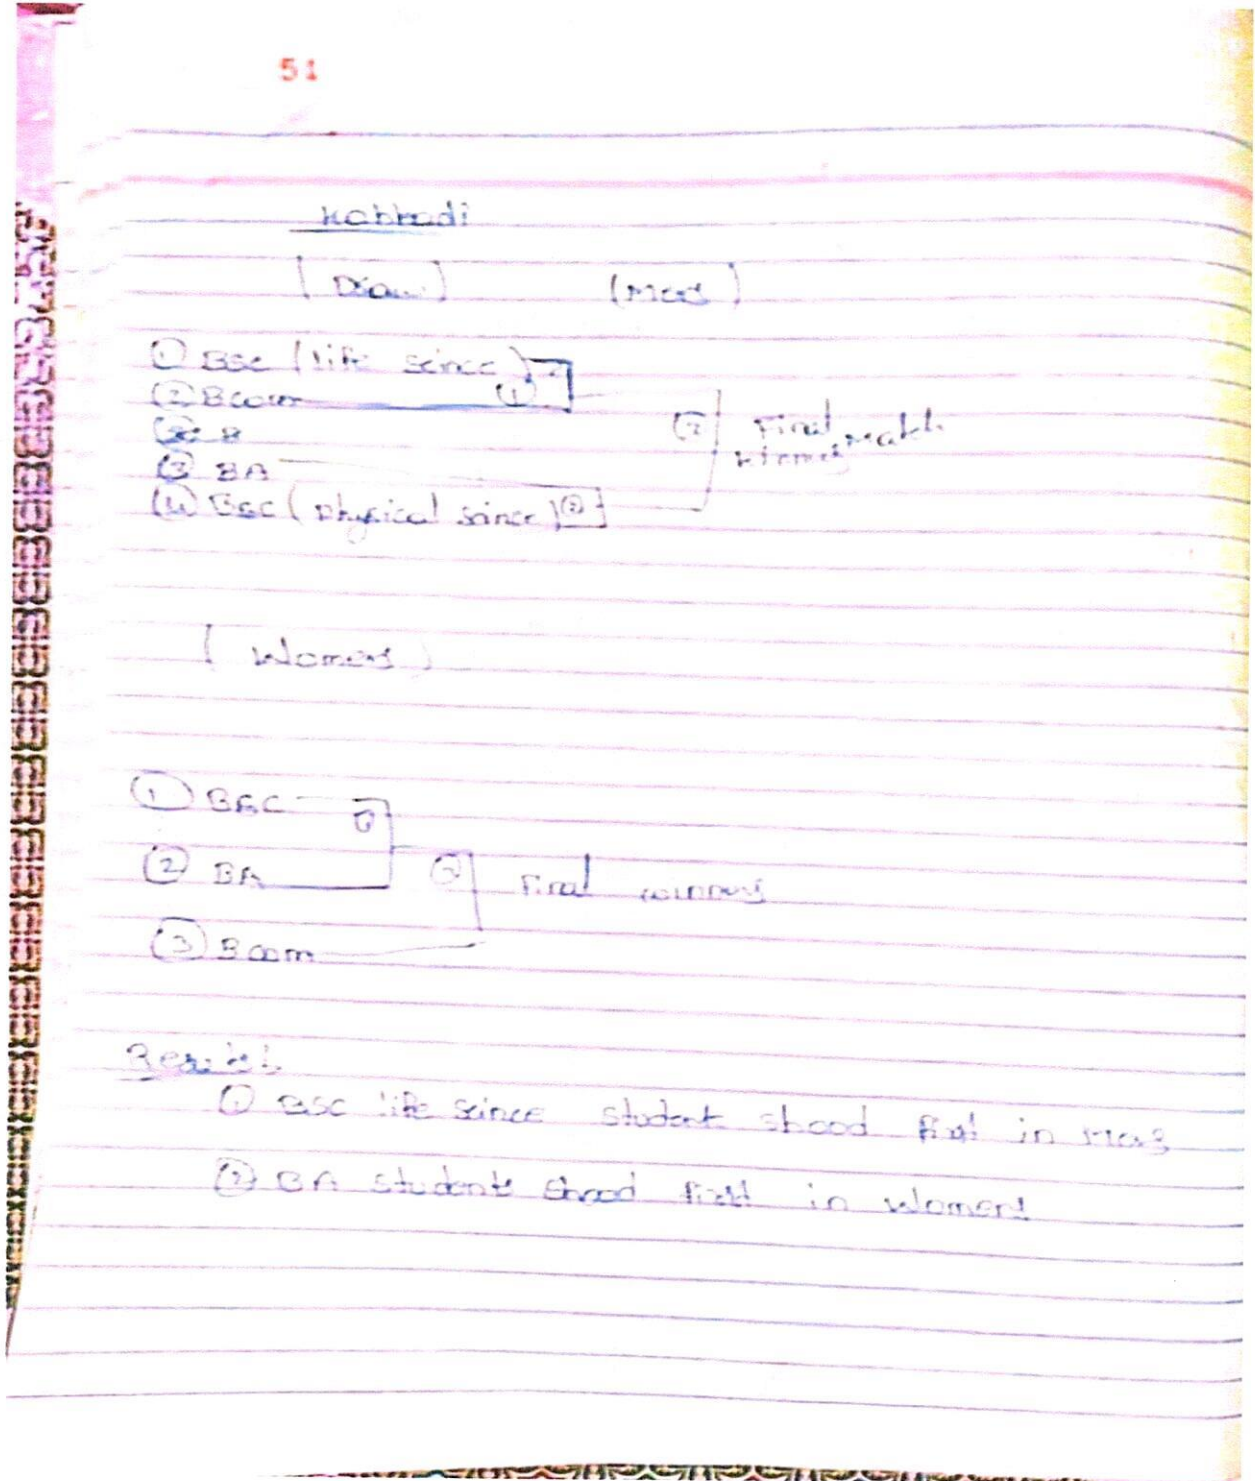 51
Kabbadi
(Draw) (Mens)
① BSc (life scince)
② Bcom ①
③ BA
④ BSc (physical scince) ②
③ Final Match
(Womens)
① BSC ①
② BA ② Final winners
③ Bcom
Results:
① BSC life scince student stood first in Mens
② BA students stood first in Womens